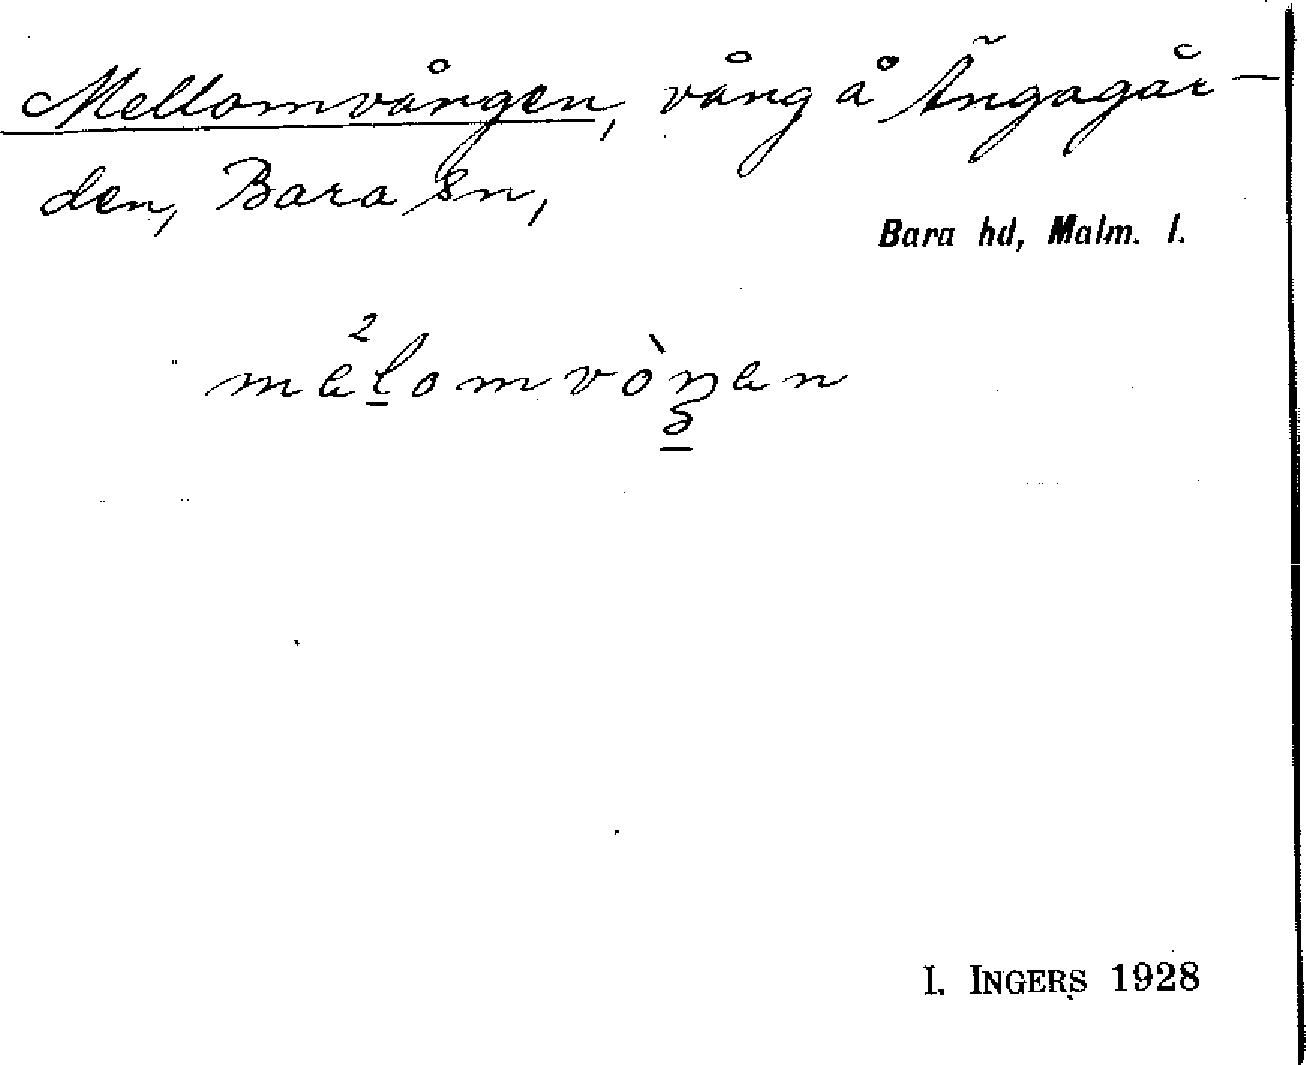 Mellomvången, vång å Ängagår-
den, Bara sn,
Bara hd, Malm. l.
I. INGERS 1928